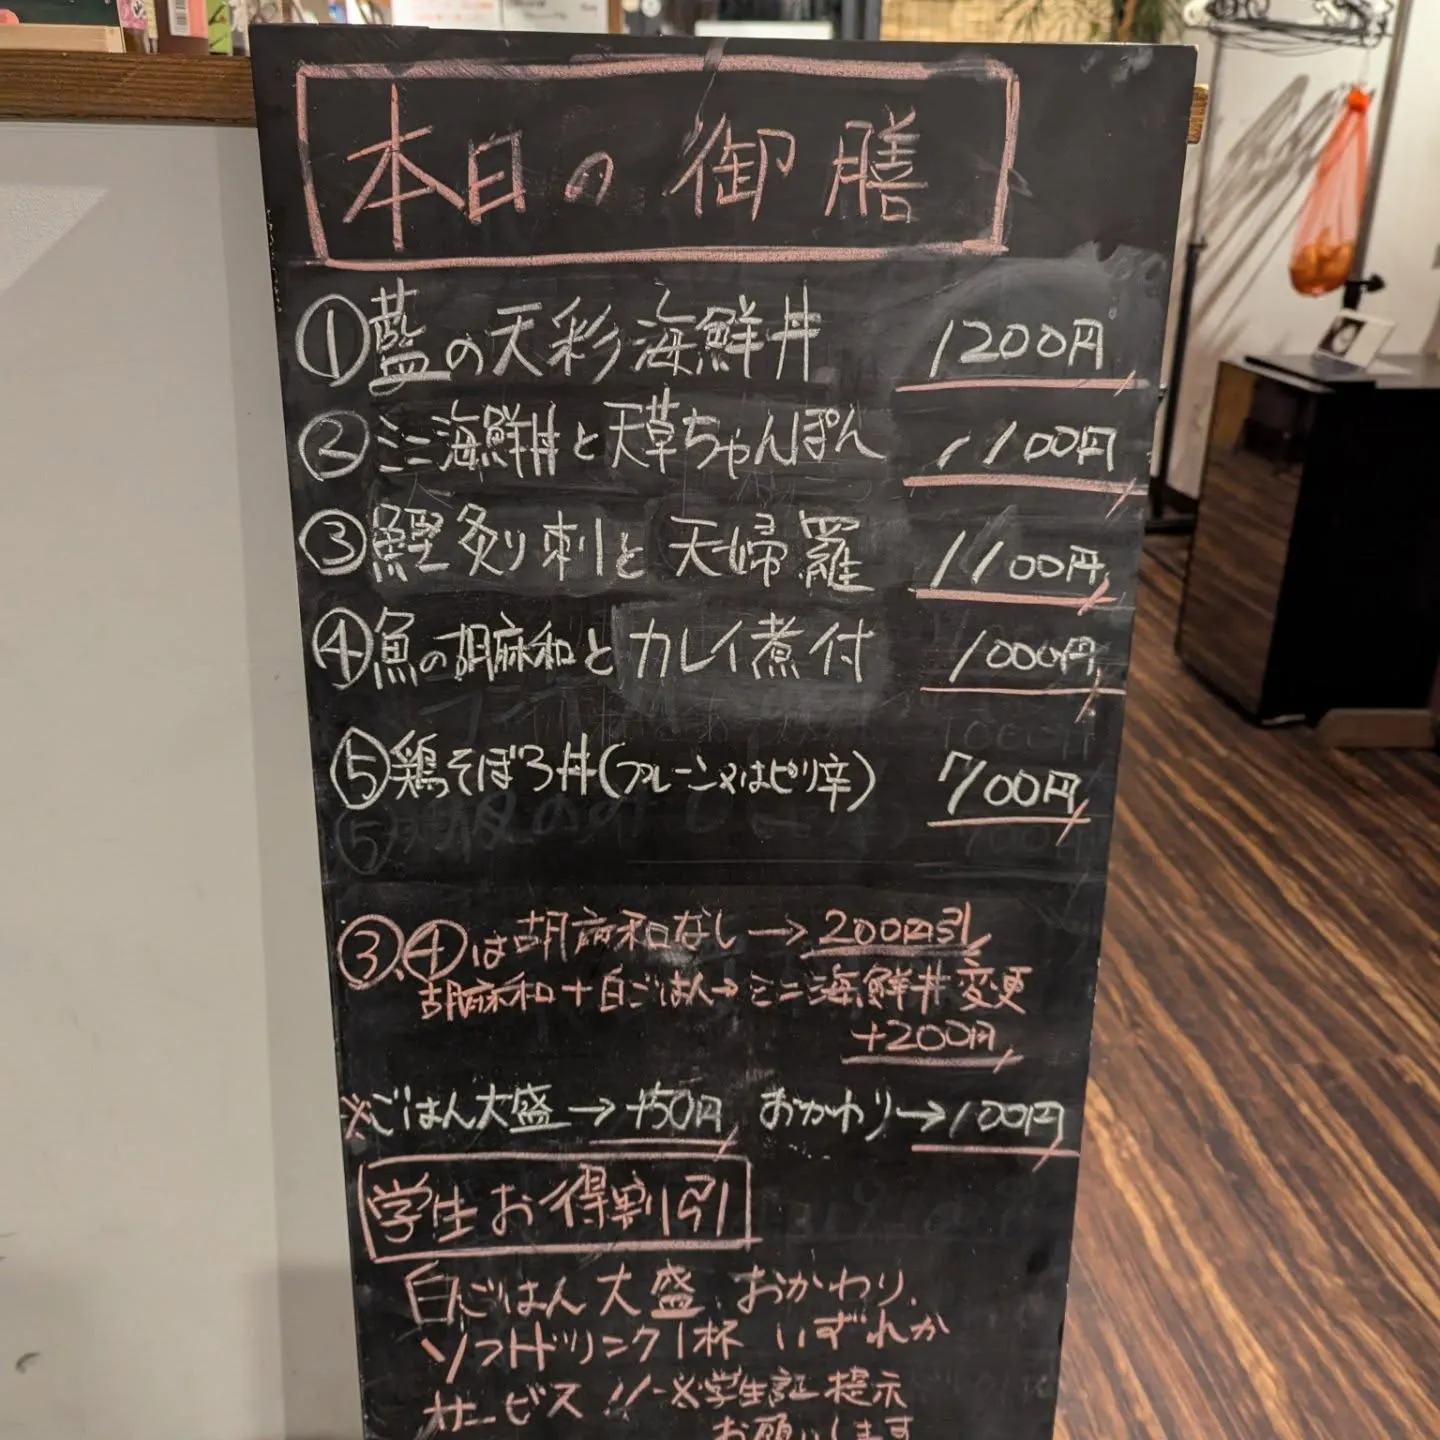 本日の御膳
①藍の天彩海鮮丼 1200円
②ミニ海鮮丼と天草ちゃんぽん 1100円
③鰹炙り刺と天婦羅 1100円
④魚の胡麻和とカレイ煮付 1000円
⑤鶏そぼろ丼(プレーン又はピリ辛) 700円
③、④は胡麻和なし→200円引
胡麻和+白ごはん→ミニ海鮮丼変更
+200円
※ごはん大盛→+50円 おかわり→100円
学生お得割引
白ごはん大盛、おかわり、
ソフトドリンク1杯 いずれか
サービス!!※学生証提示
お願いします